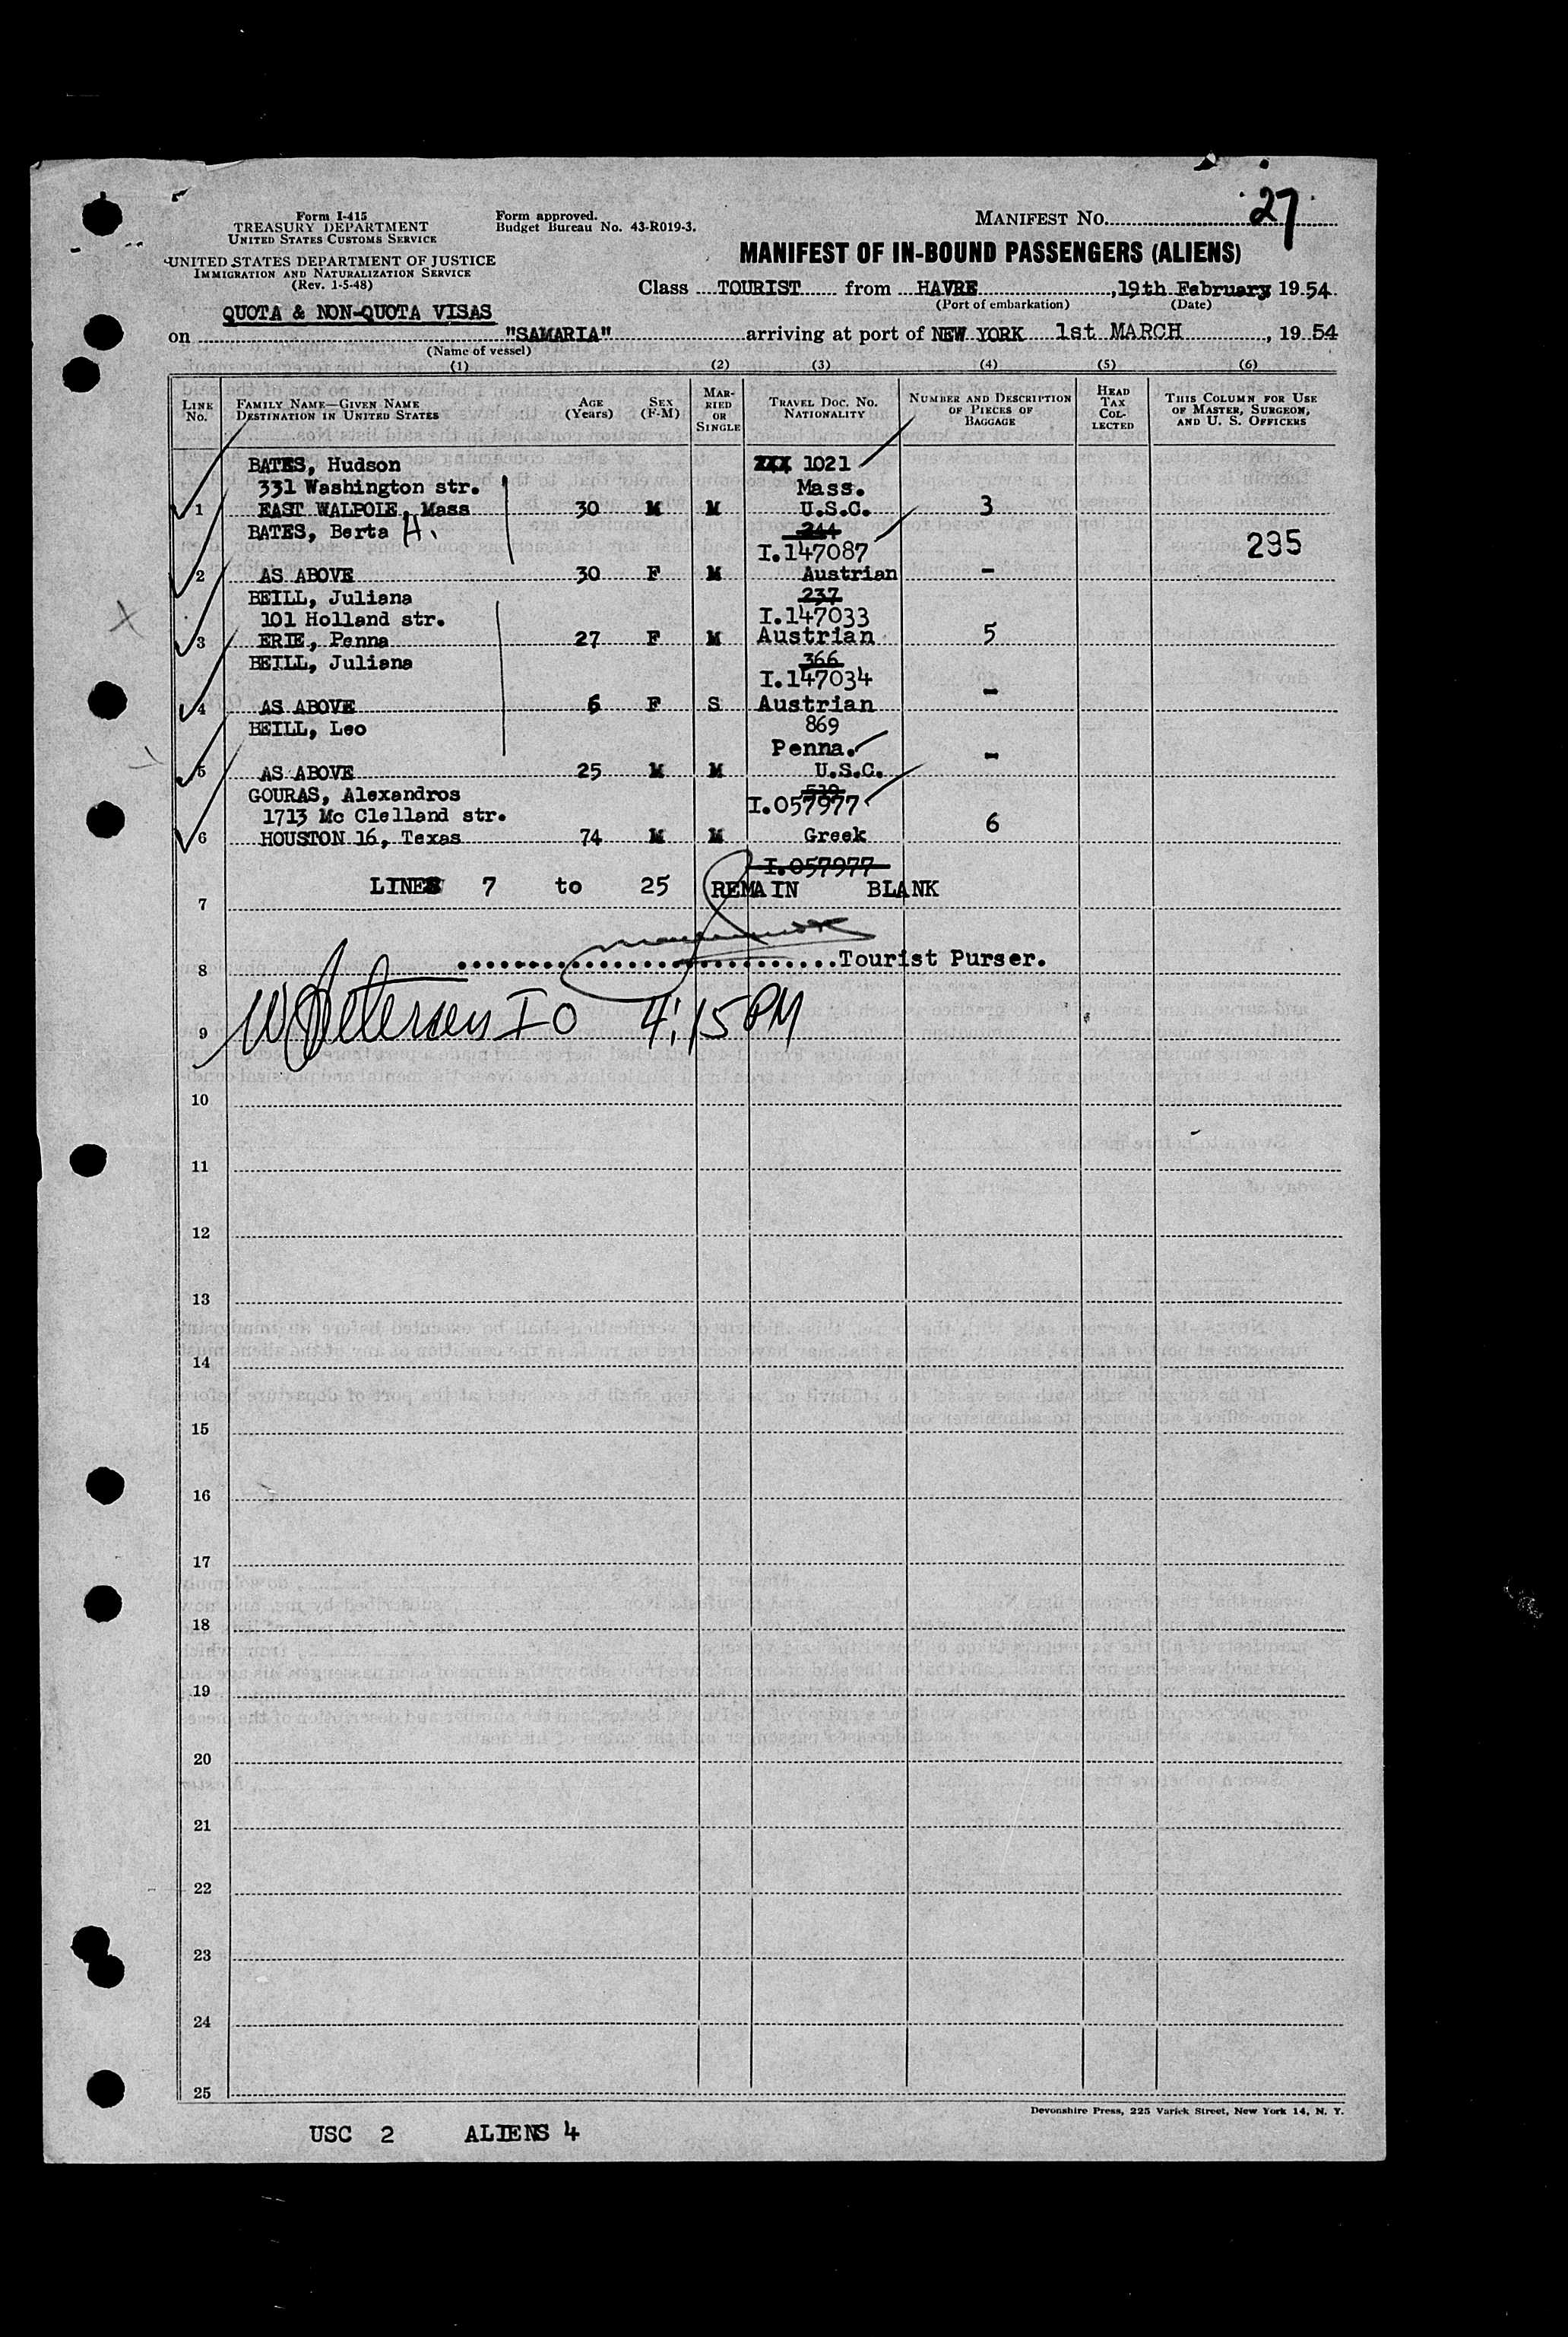 Form I-415
TREASURY DEPARTMENT
UNITED STATES CUSTOMS SERVICE
UNITED STATES DEPARTMENT OF JUSTICE
IMMIGRATION AND NATURALIZATION SERVICE
(Rev. 1-5-48)
Form approved.
Budget Bureau No. 43-R019-3.
MANIFEST NO. 27
MANIFEST OF IN-BOUND PASSENGERS (ALIENS)
Class TOURIST from HAVRE, 19th February 1954.
(Port of embarkation) (Date)
QUOTA & NON-QUOTA VISAS
on "SAMARIA" arriving at port of NEW YORK 1st MARCH, 1954
(Name of vessel)
(1) (2) (3) (4) (5) (6)
LINE No. FAMILY NAME—GIVEN NAME DESTINATION IN UNITED STATES AGE (Years) SEX (F-M) MARRIED OR SINGLE TRAVEL DOC. NO. NATIONALITY NUMBER AND DESCRIPTION OF PIECES OF BAGGAGE HEAD TAX COLLECTED THIS COLUMN FOR USE OF MASTER, SURGEON, AND U. S. OFFICERS
BATES, Hudson XXX 1021
331 Washington str. Mass.
1 EAST WALPOLE, Mass 30 M M U.S.C. 3
BATES, Berta H. 244
I.147087 295
2 AS ABOVE 30 F M Austrian -
BEILL, Juliana 237
101 Holland str. I.147033
3 ERIE, Penna 27 F M Austrian 5
BEILL, Juliana 366
I.147034
4 AS ABOVE 6 F S Austrian -
BEILL, Leo 869
Penna.
5 AS ABOVE 25 M M U.S.C. -
GOURAS, Alexandros
1713 Mc Clelland str. I.057977
6 HOUSTON 16, Texas 74 M M Greek 6
I.057977
LINES 7 to 25 REMAIN BLANK
7
8 Tourist Purser.
9 Petersen I O 4:15 PM
10
11
12
13
14
15
16
17
18
19
20
21
22
23
24
25
Devonshire Press, 225 Varick Street, New York 14, N. Y.
USC 2 ALIENS 4